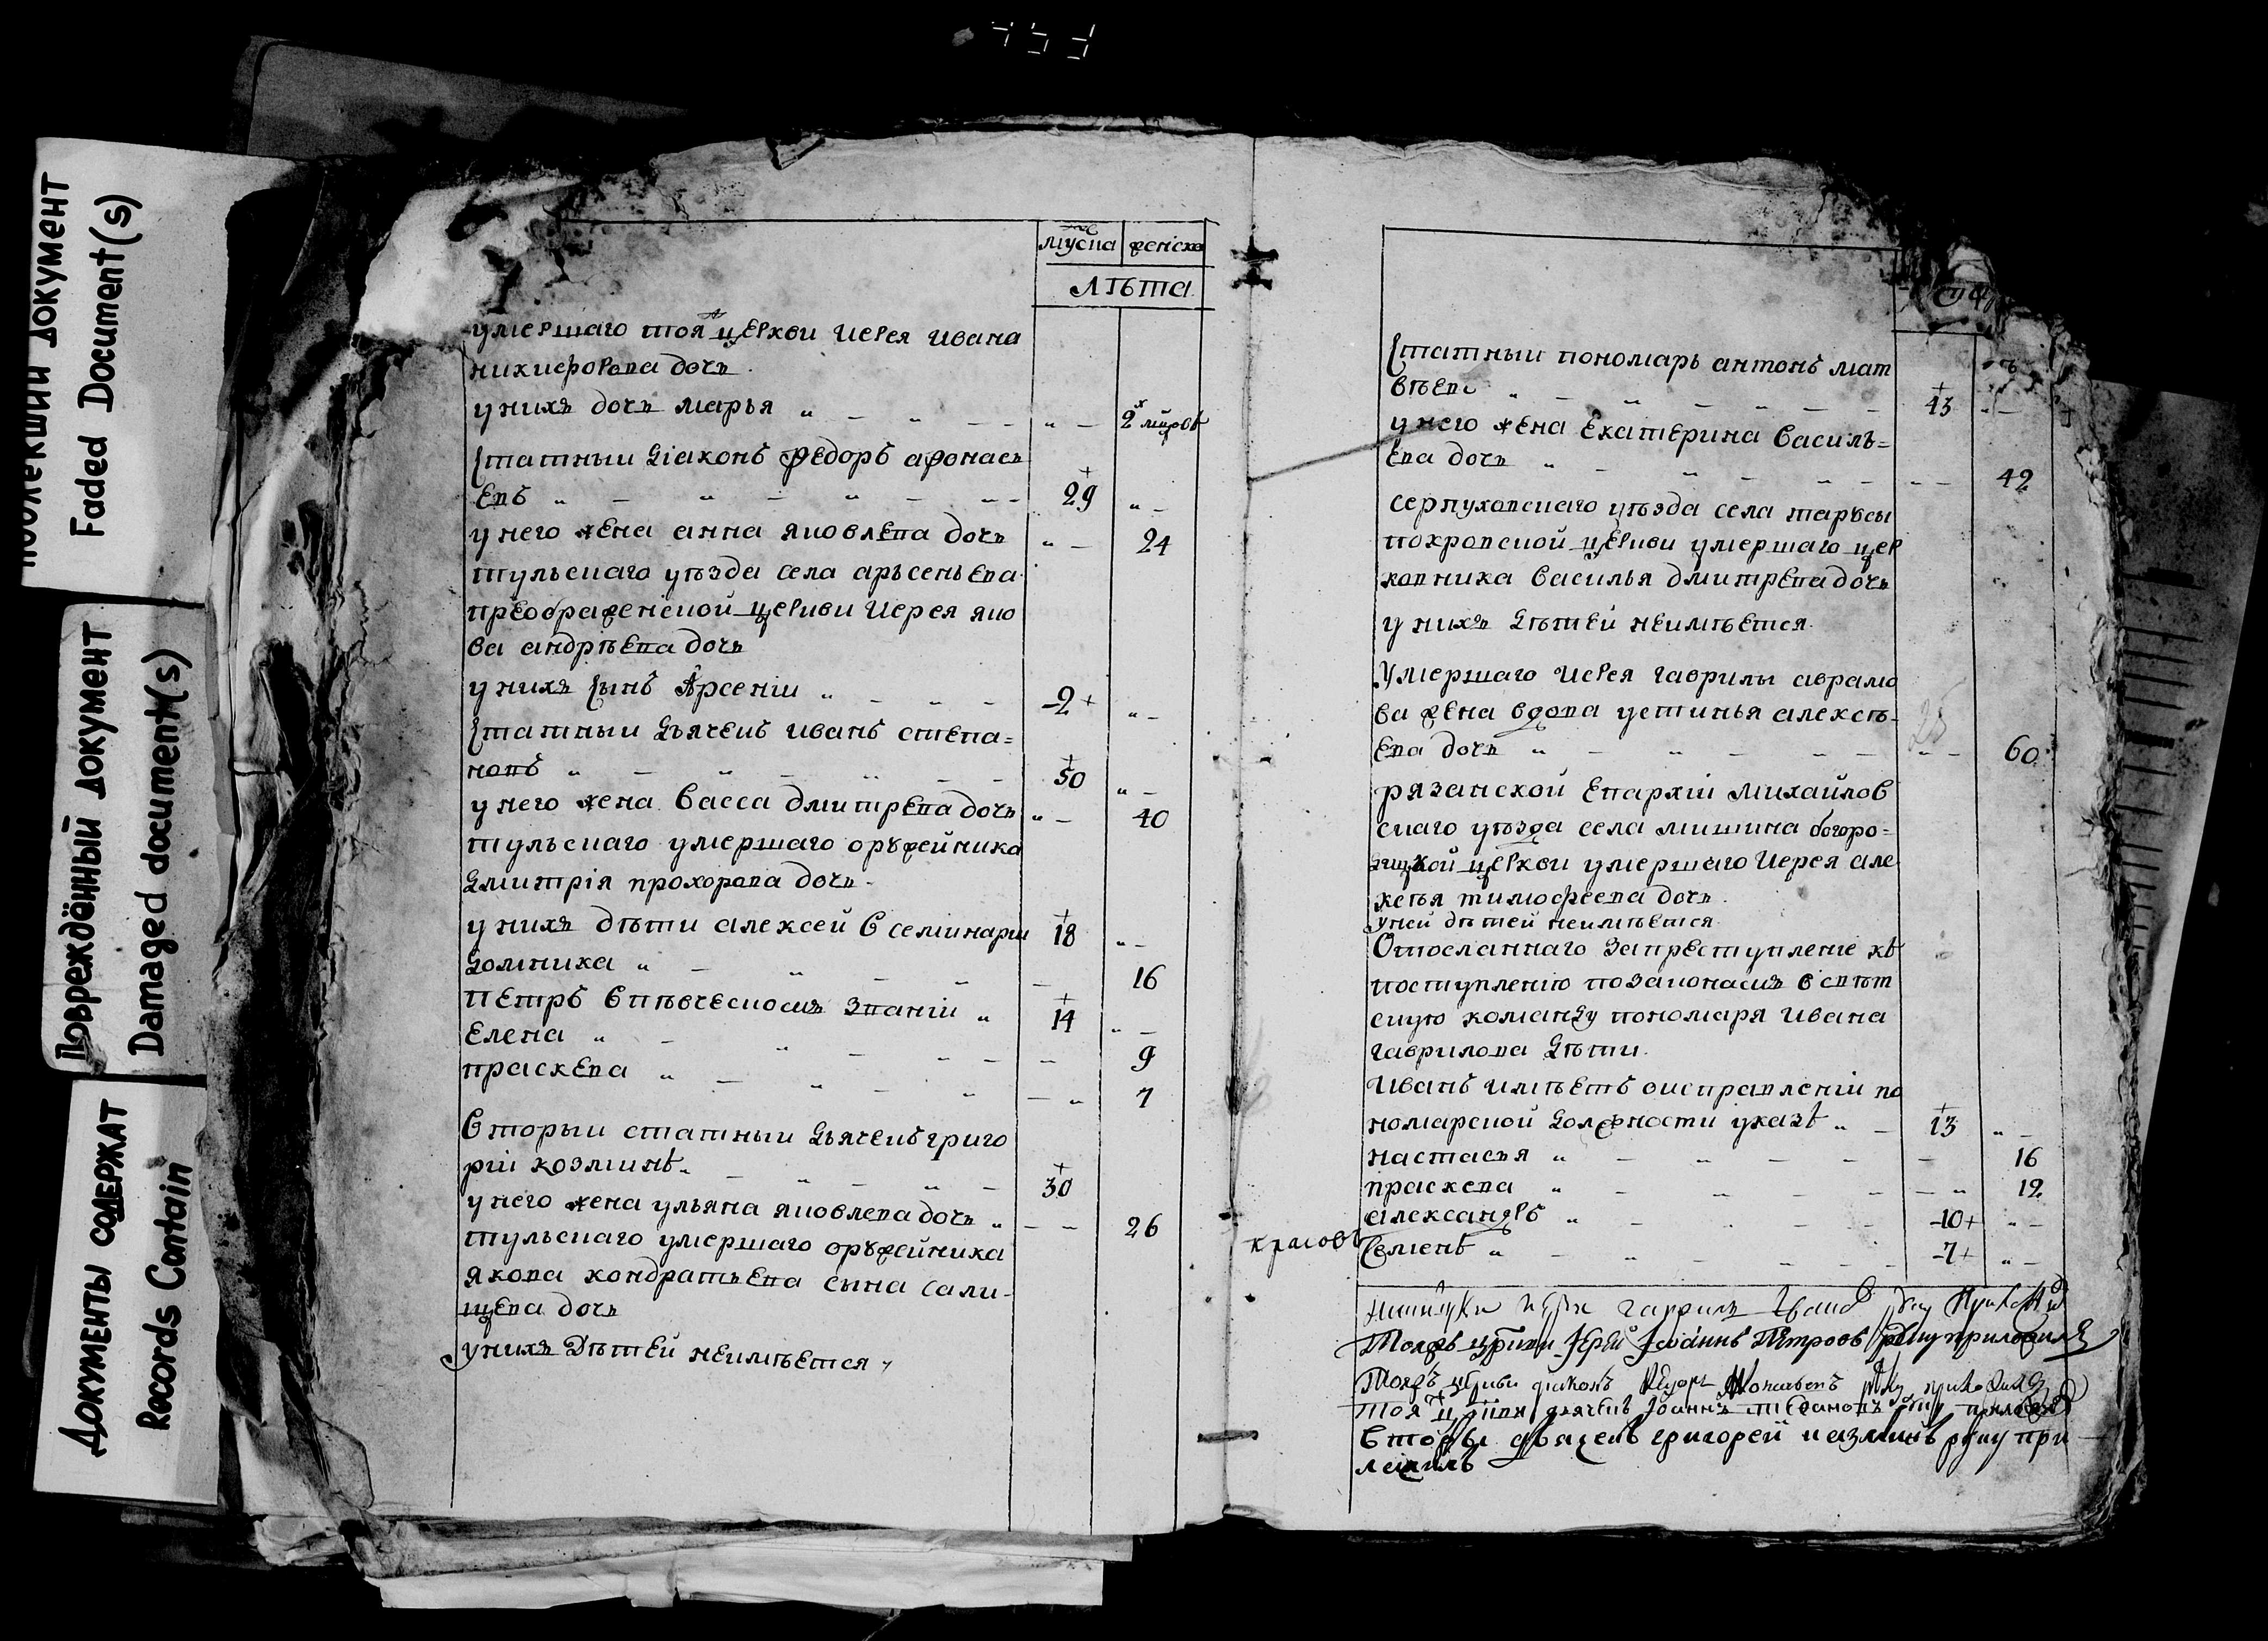 Поблекший документ
Faded Document(s)
Повреждённый документ
Damaged document(s)
Документы содержат
Records Contain
муска женска
лѣта
умершаго тоя церкви иерея ивана
никифорова дочь
у нихъ дочь марья 2
статный діаконъ федоръ афонась
евъ 29
у него жена анна яковлева дочь 24
тульскаго уѣзда села арьсеньева
преображенской церкви иерея яко
ва андрѣева дочь
у нихъ сынъ Арсеній 2
статный дьячекъ иванъ степа=
новъ 50
у него жена васса дмитрева дочь 40
тульскаго умершаго оружейника
дмитрія прохорова дочь
у нихъ дѣти алексей в семинарии 18
домника 16
петръ в певческомъ званіи 14
елена 9
праскева 7
вторый статный дьячекъ григо
рій козминъ 30
у него жена ульяна яковлева дочь 26
тульскаго умершаго оружейника
якова кондратьева сына сали-
щева дочь
у нихъ дѣтей неимѣется
статный пономарь антонъ мат
вѣевъ 43
у него жена екатерина василь=
ева дочь 42
серпуховскаго уѣзда села тарусы
покровской церкви умершаго цер
ковника василья дмитрева дочь
у нихъ дѣтей неимѣется
Умершаго иерея гаврилы аврамо
ва жена вдова устинья алексѣ-
ева дочь 60
рязанской епархіи михайлов
скаго уѣзда села мишина богоро=
дицкой церкви умершаго иерея але
ксѣя тимофеева дочь
у ней дѣтей неимѣется
Отосланнаго за преступленіе къ
поступленію по законамъ в свѣт
скую команду пономаря ивана
гаврилова дѣти
иванъ имѣетъ о исправленіи по
номарской должности указъ 13
настасья 16
праскева 12
александръ 10
семенъ 7
красовъ
гаврилъ
Тояжъ церкви Іерей Іоаннъ Петровъ руку приложилъ
Тояжъ церкви диаконъ Федоръ Афонасьевъ руку приложилъ
Тоя церкви дьячекъ Іоаннъ Стефановъ руку приложилъ
вторы дьячекъ григорей казминъ руку при
ложилъ